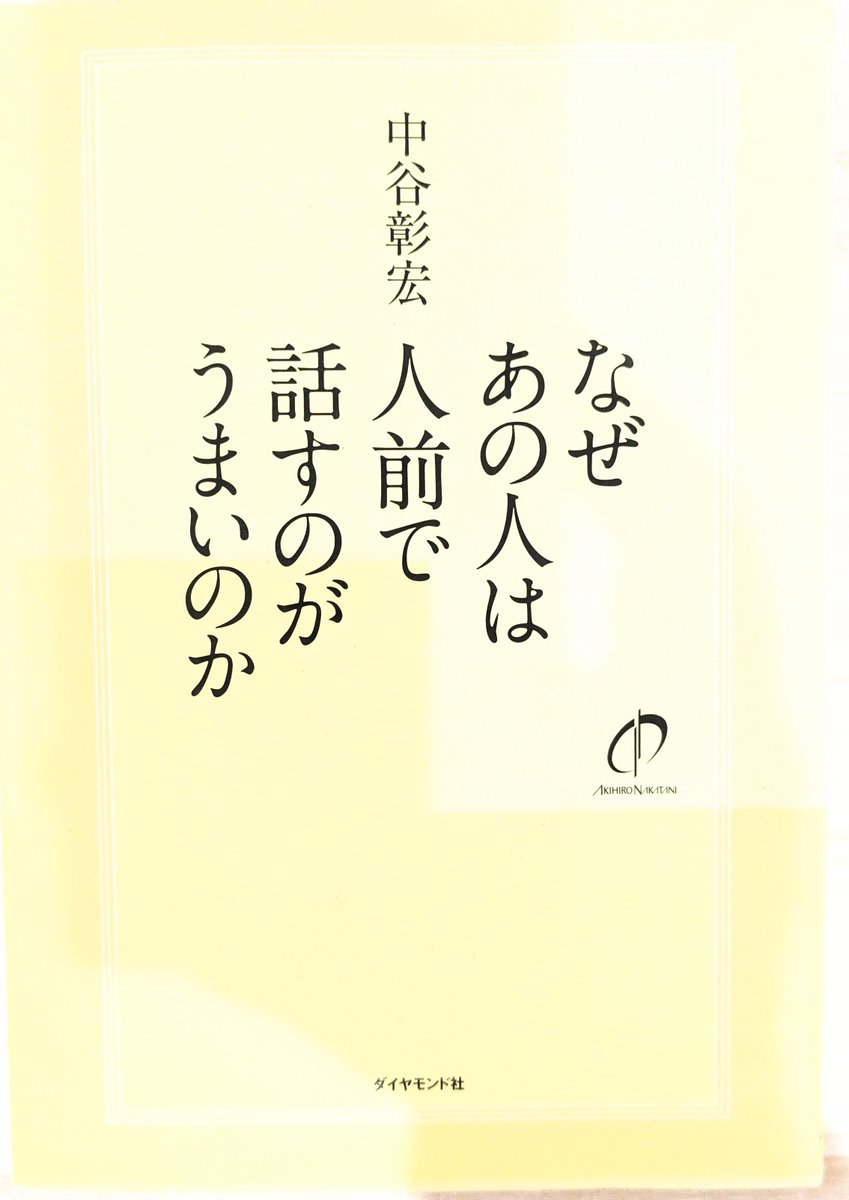 中谷彰宏
なぜ
あの人は
人前で
話すのが
うまいのか
AKIHIRO NAKATANI
ダイヤモンド社